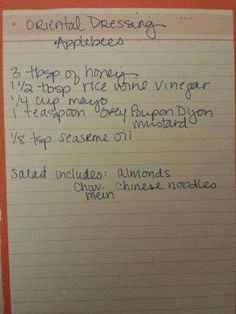 Oriental Dressing
Applebees
3 tbsp of honey
1 1/2 tbsp rice wine vinegar
1/4 cup mayo
1 teaspoon Grey Poupon Dijon
mustard
1/8 tsp seaseme oil
Salad includes: almonds
Chow, chinese noodles
mein